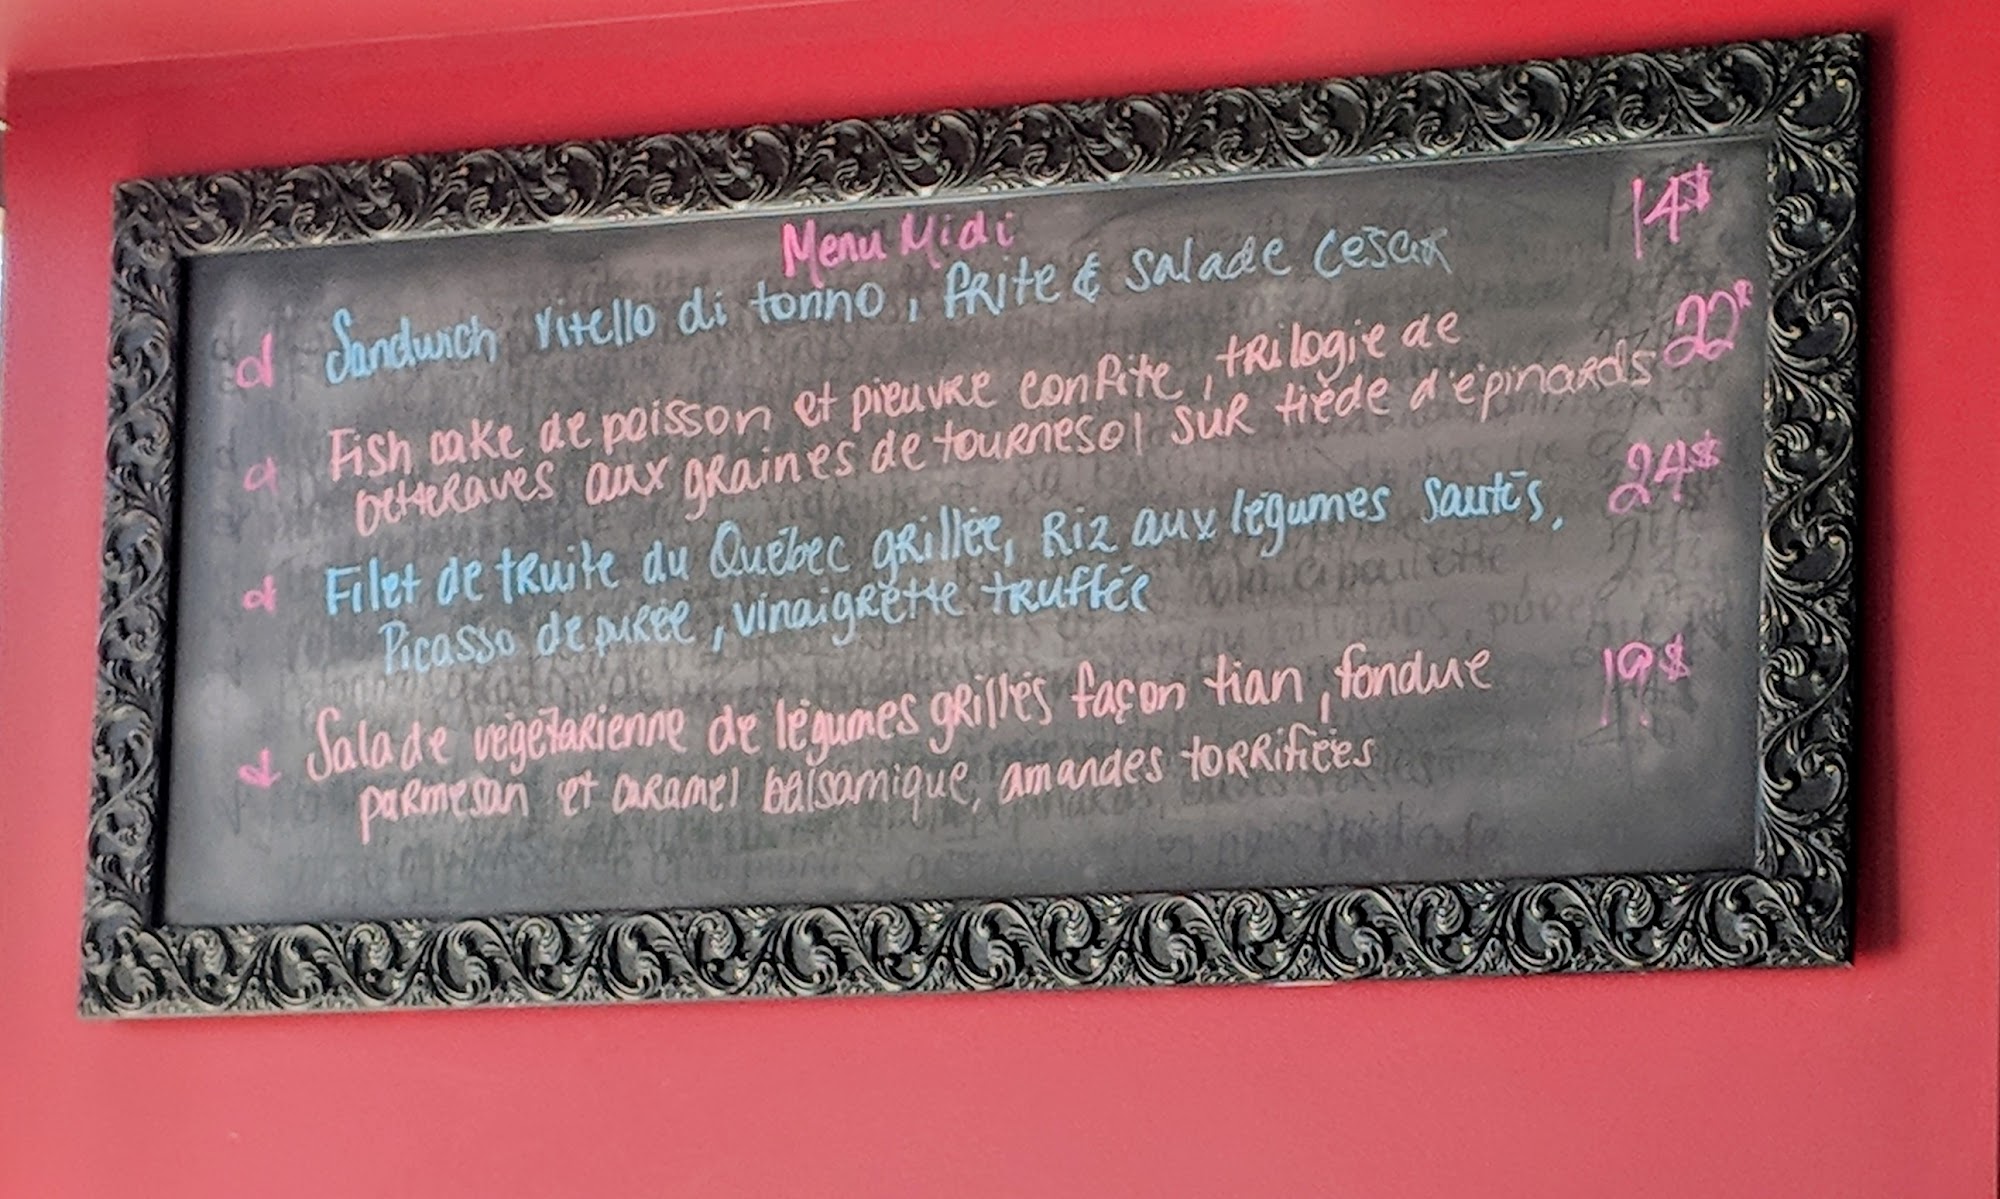 Menu Midi
Sandwich vitello di tonno, frite & salade cesar 14$
Fish cake de poisson et pieuvre confite, trilogie de
betteraves aux graines de tournesol sur tiède d'épinards 22$
Filet de truite du Québec grillée, Riz aux légumes sautés, 24$
Picasso de purée, vinaigrette truffée
Salade végétarienne de légumes grillés façon tian, fondue 19$
parmesan et caramel balsamique, amandes torrifiées